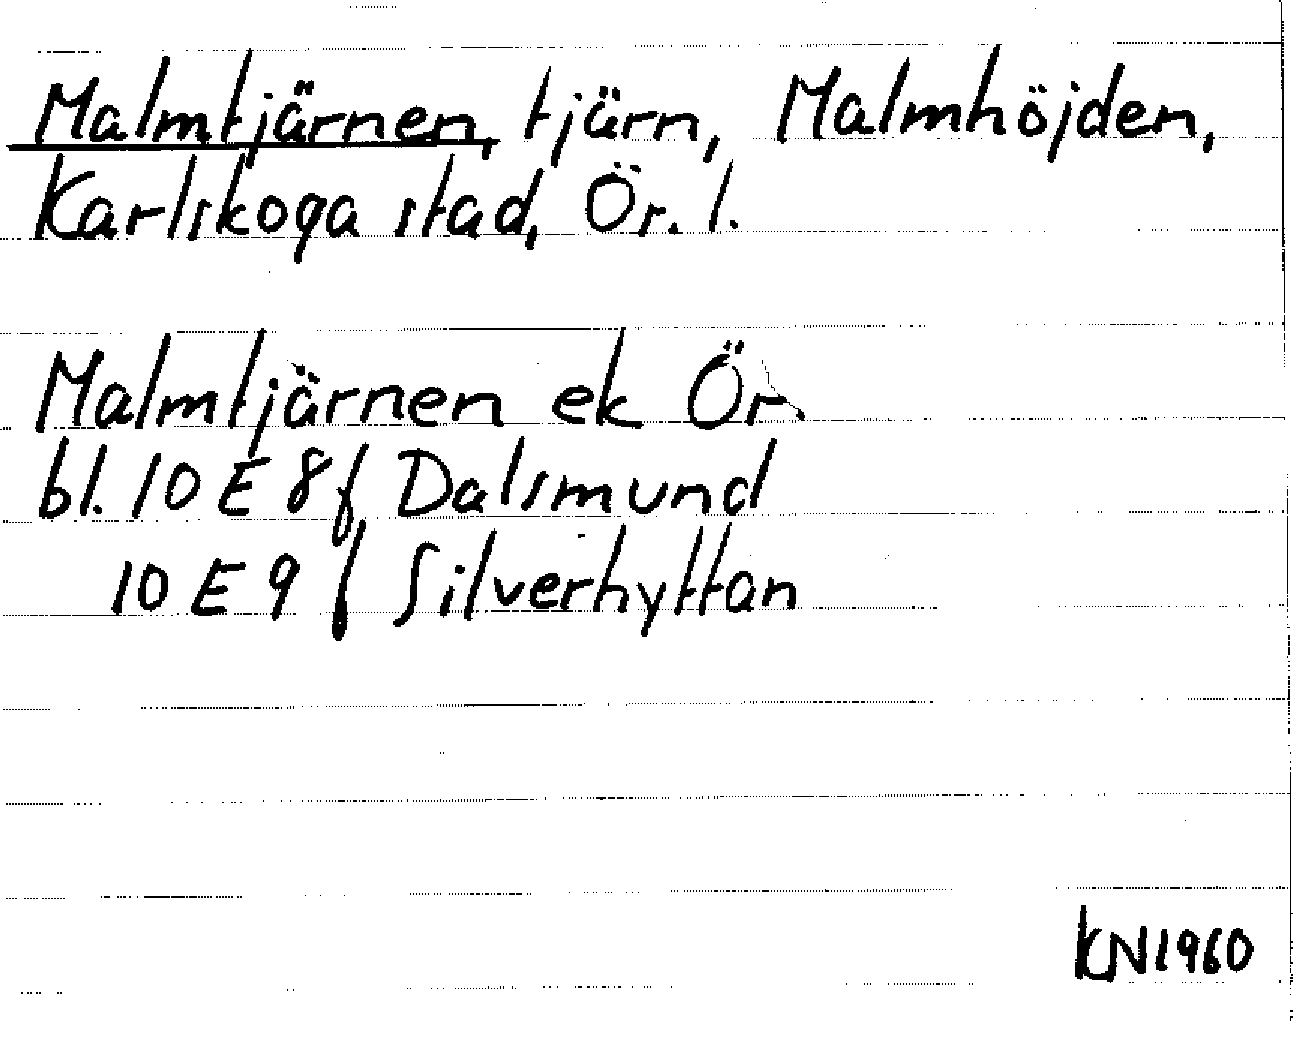 Malmtjärnen, tjärn, Malmhöjden,
Karlskoga stad, Ör. l.
Malmtjärnen ek Ör.
bl. 10 E 8 f Dalsmund
10 E 9 f Silverhyttan
KN1960